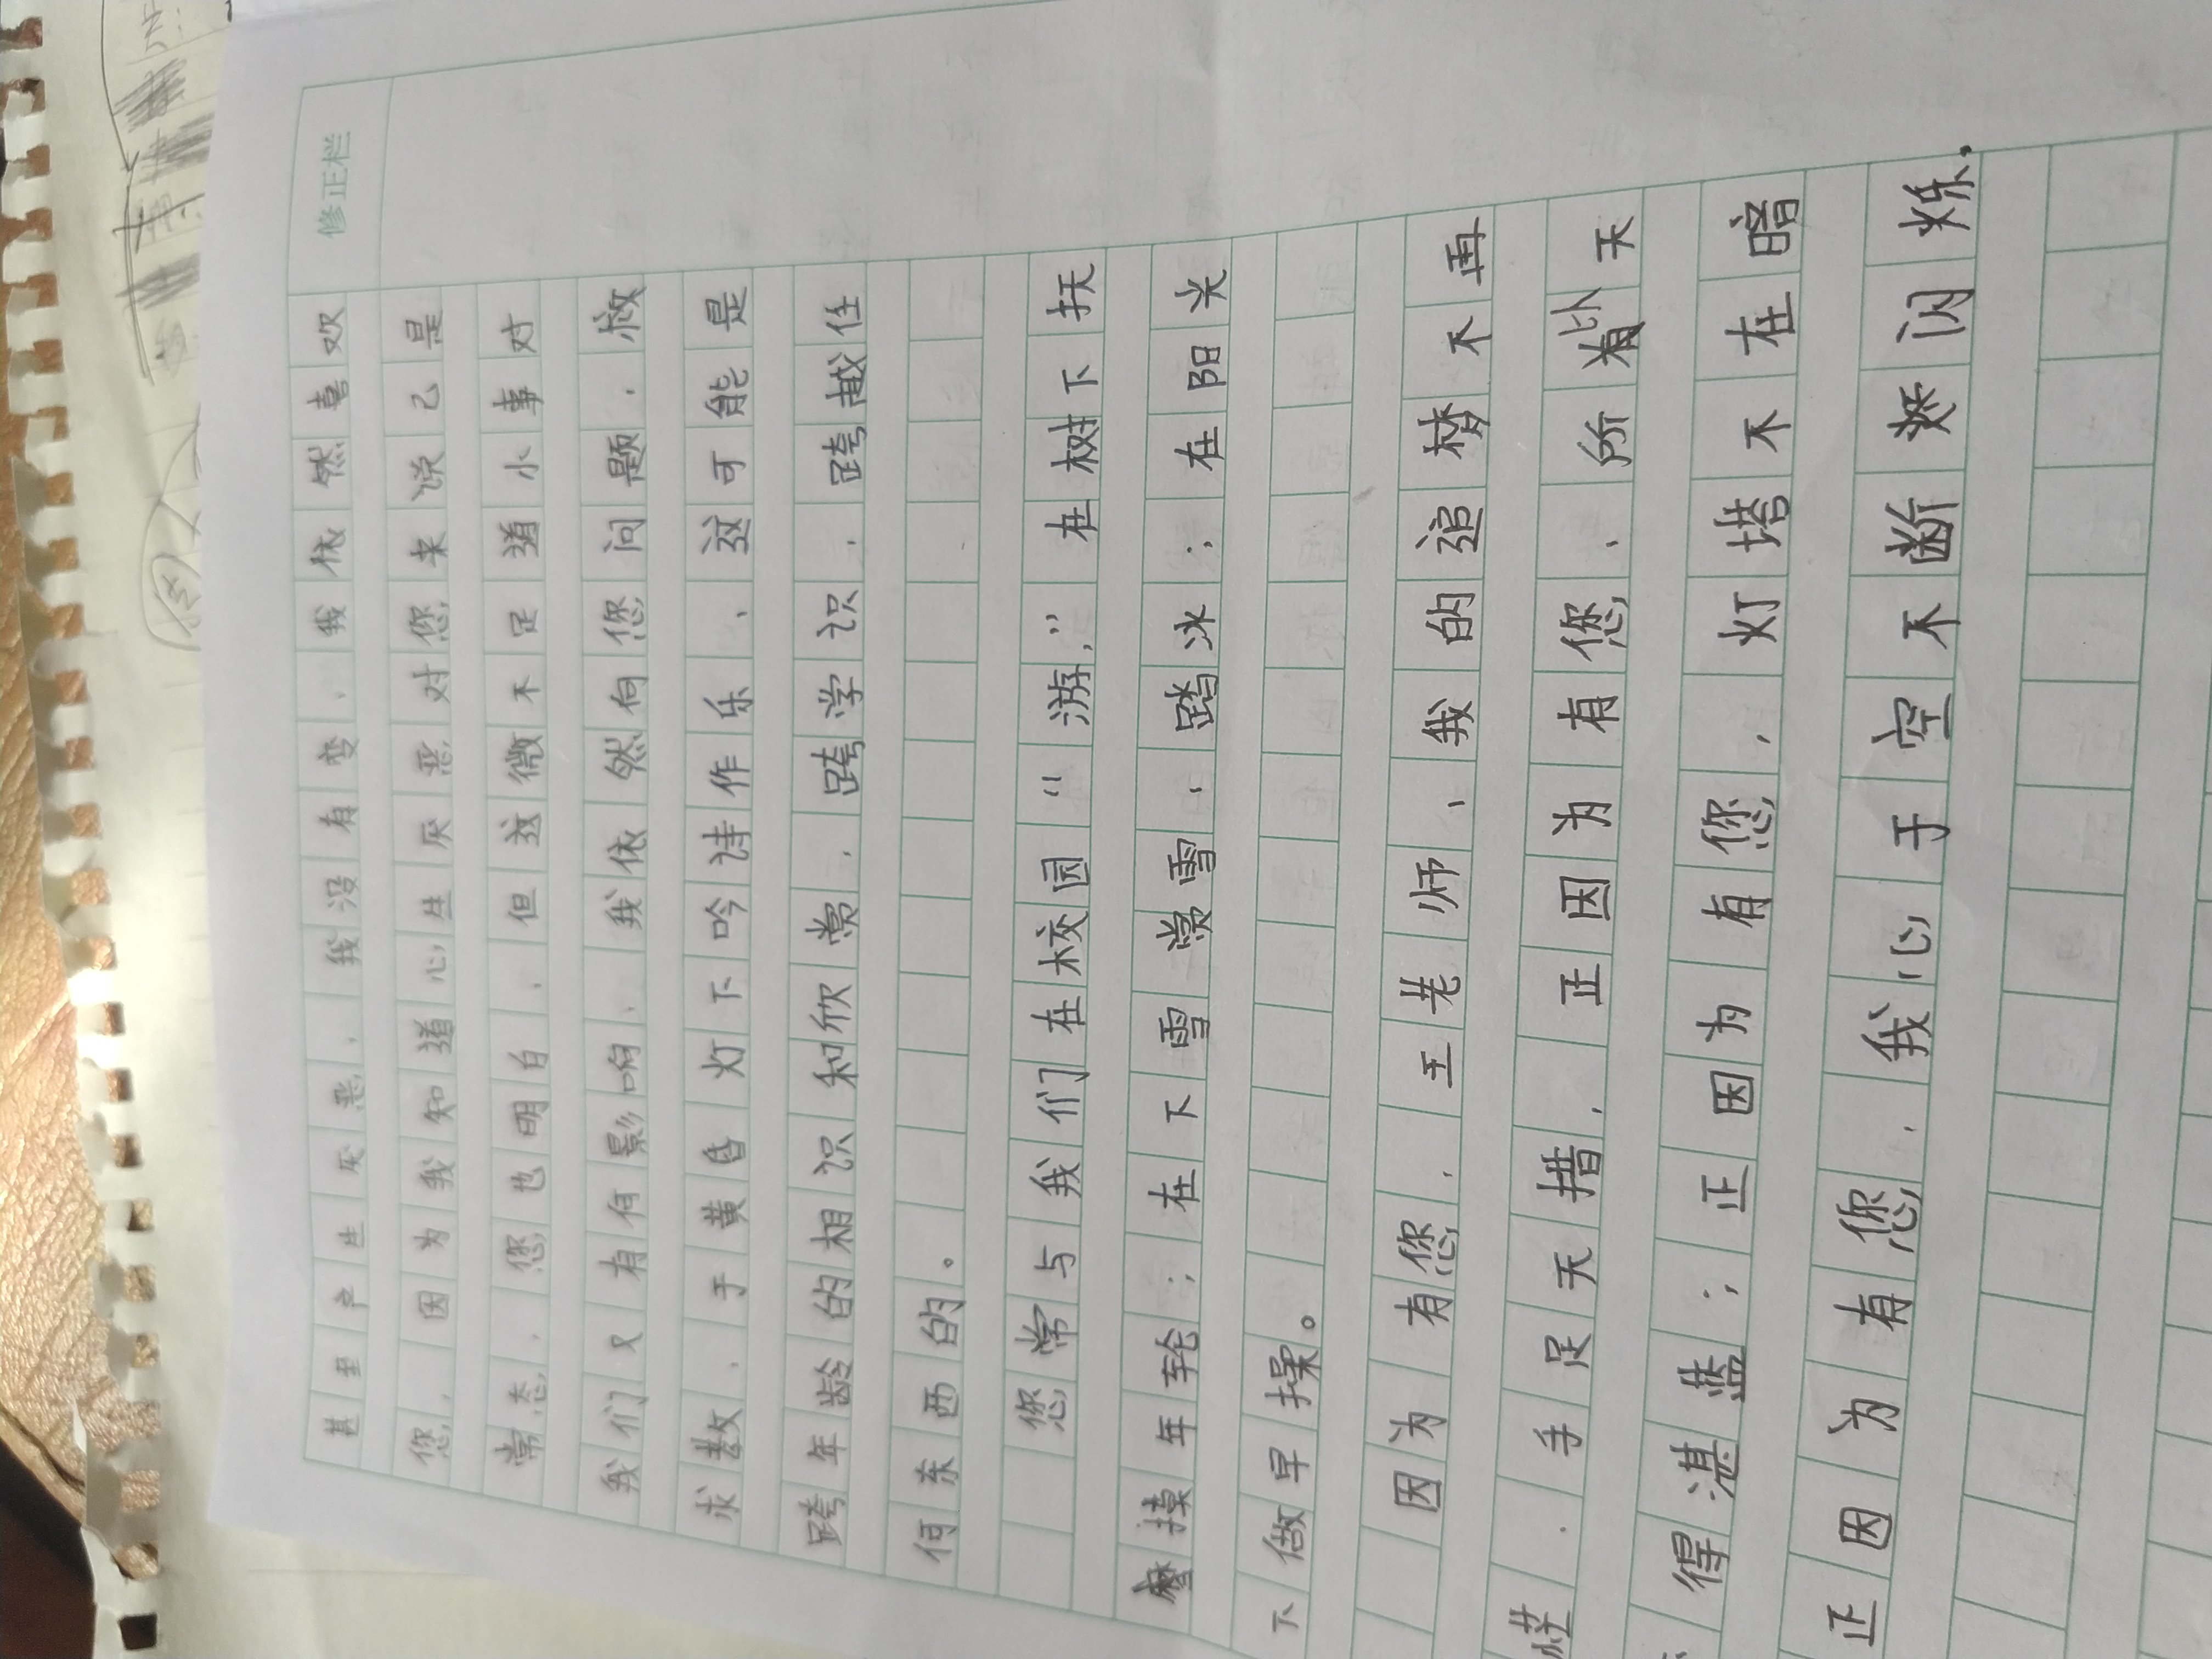 修正栏
甚至产生厌恶，我没有变，我依然喜欢
您，因为我知道心生厌恶对您来说已是
常态，您也明白，但这微不足道小事对
我们又有何影响，我依然向您问题，救
求教，于黄昏灯下吟诗作乐，这可能是
跨年龄的相识和欣赏，跨学识，跨越任
何东西的。
您常与我们在校园“游，”在树下抚
摸年轮；在下雪赏雪，踏冰；在阳光
下做早操。
因为有您，王老师，我的追梦不再
茫，手足无措，正因为有您，所以天
得湛蓝；正因为有您，灯塔不在暗
正因为有您，我心于空不断闪烁.